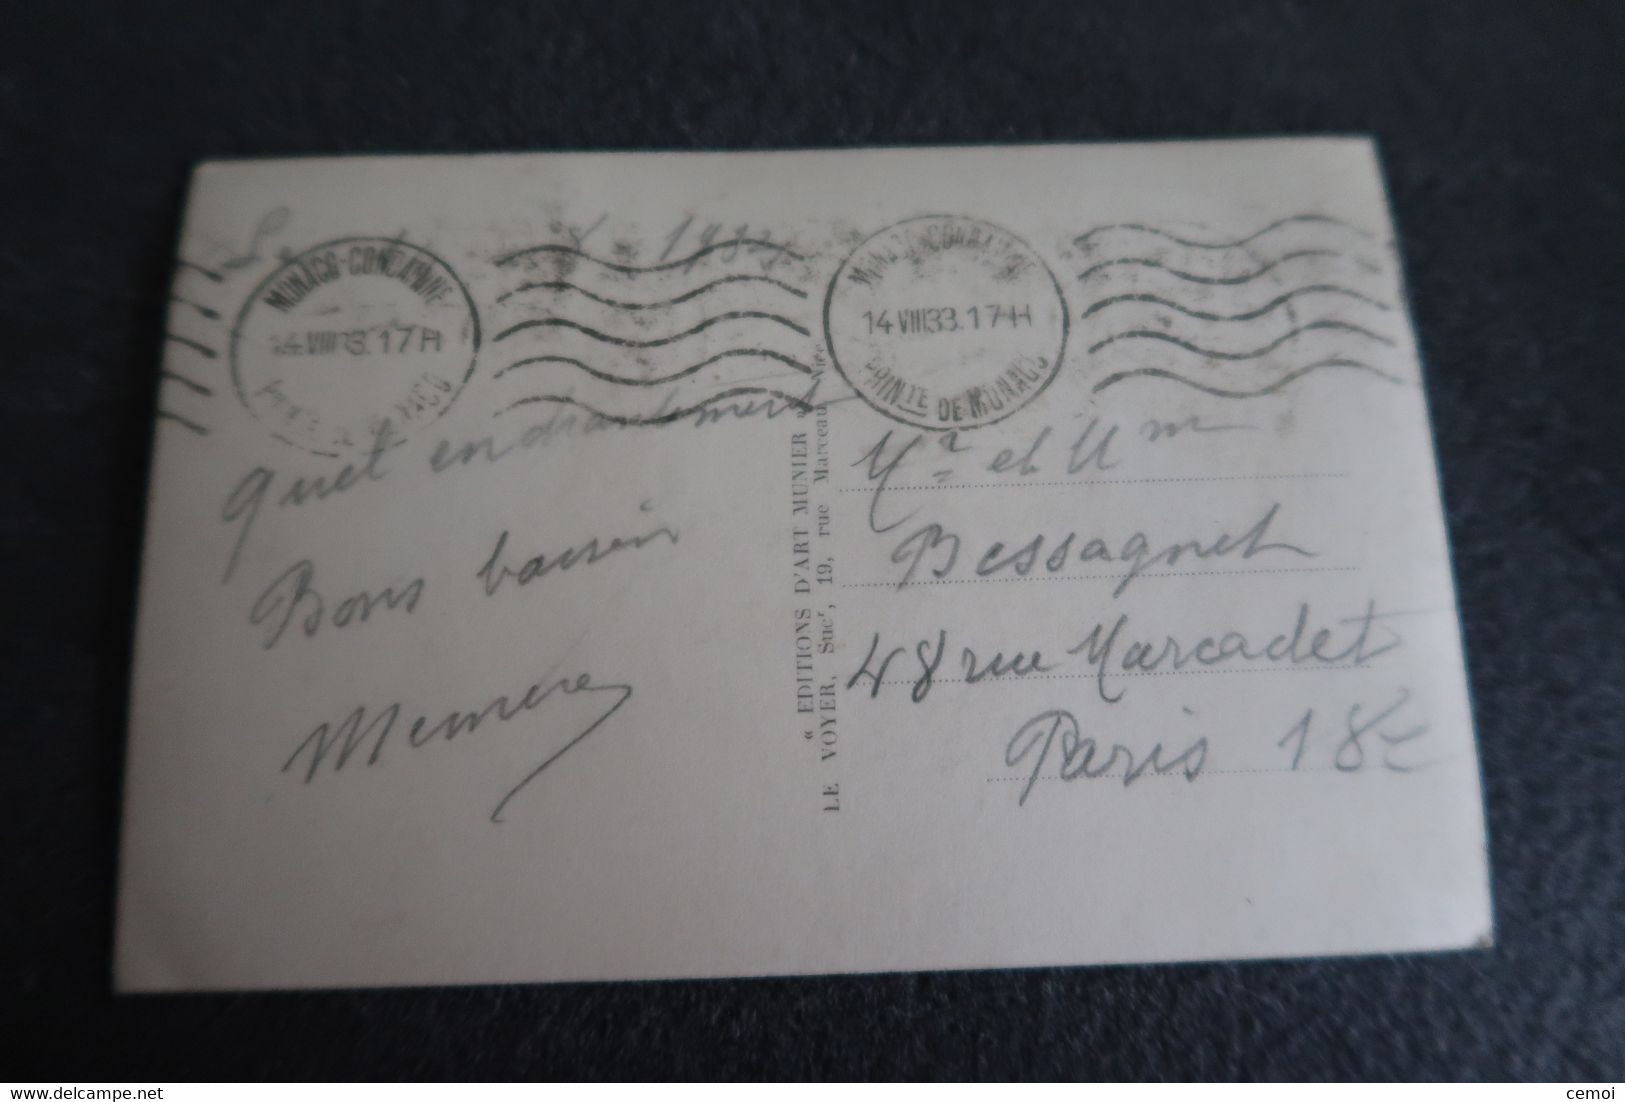 8 - 1933
MONACO-CONDAMINE
14 VIII 33.17H
MONACO-CONDAMINE
14 VIII 33.17H
PRINTE DE MONACO
quel enchantement
Bons baisers
Memere
« EDITIONS D'ART MUNIER »
LE VOYER, Sucr, 19, rue Marceau Nice
Mr et Mme
Bessagnet
48 rue Marcadet
Paris 18e
cemoi